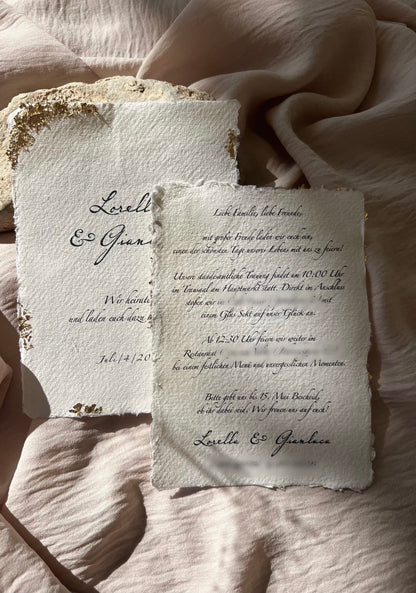 Lorell
& Gian
Wir heirate
und laden euch dazu
Juli/4/20
Liebe Familie, liebe Freunde,
mit großer Freude laden wir euch ein,
einen der schönsten Tage unseres Lebens mit uns zu feiern!
Unsere standesamtliche Trauung findet um 10:00 Uhr
im Trausaal am Hauptmarkt statt. Direkt im Anschluss
stoßen wir mit
einem Glas Sekt auf unser Glück an.
Ab 12:30 Uhr feiern wir weiter im
Restaurant
bei einem festlichen Menü und unvergesslichen Momenten.
Bitte gebt uns bis 15. Mai Bescheid,
ob ihr dabei seid. Wir freuen uns auf euch!
Lorella & Gianluca